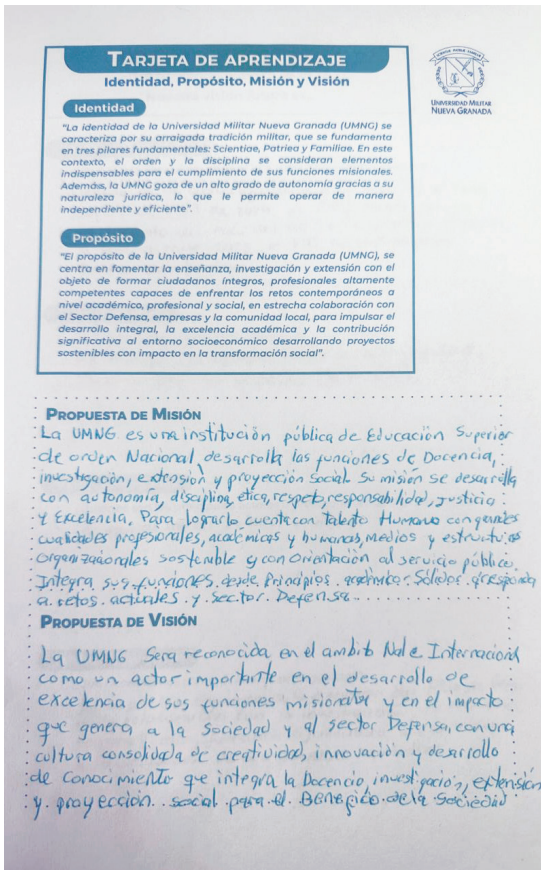 TARJETA DE APRENDIZAJE
Identidad, Propósito, Misión y Visión
UNIVERSIDAD MILITAR
NUEVA GRANADA
Identidad
"La identidad de la Universidad Militar Nueva Granada (UMNG) se
caracteriza por su arraigada tradición militar, que se fundamenta
en tres pilares fundamentales: Scientiae, Patriea y Familiae. En este
contexto, el orden y la disciplina se consideran elementos
indispensables para el cumplimiento de sus funciones misionales.
Además, la UMNG goza de un alto grado de autonomía gracias a su
naturaleza jurídica, lo que le permite operar de manera
independiente y eficiente".
Propósito
"El propósito de la Universidad Militar Nueva Granada (UMNG), se
centra en fomentar la enseñanza, investigación y extensión con el
objeto de formar ciudadanos íntegros, profesionales altamente
competentes capaces de enfrentar los retos contemporáneos a
nivel académico, profesional y social, en estrecha colaboración con
el Sector Defensa, empresas y la comunidad local, para impulsar el
desarrollo integral, la excelencia académica y la contribución
significativa al entorno socioeconómico desarrollando proyectos
sostenibles con impacto en la transformación social".
PROPUESTA DE MISIÓN
La UMNG es una institución pública de Educación Superior
de orden Nacional, desarrolla las funciones de Docencia,
investigación, extensión y proyección Social. Su misión se desarrolla
con autonomía, disciplina, etica, respeto, responsabilidad, Justicia
y Excelencia, Para lograrlo cuenta con Talento Humano con grandes
cualidades profesionales, académicas y humanas, Medios y estructuras
organizacionales sostenible y con orientación al servicio público.
Integra sus funciones desde Principios académicos Sólidos
a retos actuales y Sector Defensa
PROPUESTA DE VISIÓN
La UMNG Sera reconocida en el ambito Nal e Internacional
como un actor importante en el desarrollo de
excelencia de sus funciones y en el impacto
que genera a la Sociedad y al sector Defensa, con una
cultura consolidada de creatividad, innovación y desarrollo
de conocimiento que integra la Docencia, investigación, extensión
y proyección social para el Beneficio de la Sociedad